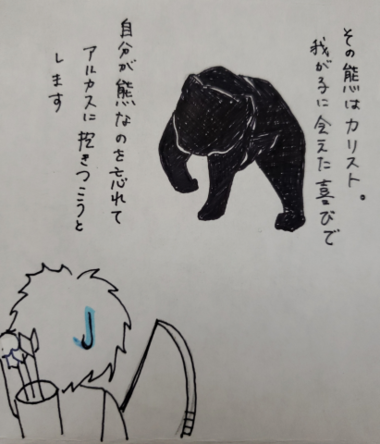 その熊はカリスト。
我が子に会えた喜びで
自分が熊なのを忘れて
アルカスに抱きつこうと
します